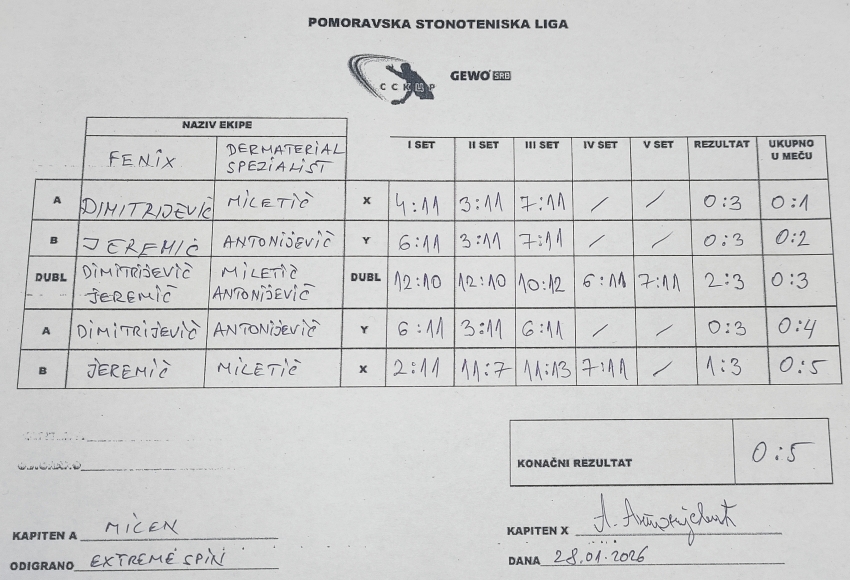 POMORAVSKA STONOTENISKA LIGA
CCKUP GEWO SRB
NAZIV EKIPE
FENIX DERMATERIAL SPEZIALIST I SET II SET III SET IV SET V SET REZULTAT UKUPNO U MEČU
A DIMITRIJEVIĆ MILETIĆ X 4:11 3:11 7:11 / / 0:3 0:1
B JEREMIĆ ANTONIJEVIĆ Y 6:11 3:11 7:11 / / 0:3 0:2
DUBL DIMITRIJEVIĆ JEREMIĆ MILETIĆ ANTONIJEVIĆ DUBL 12:10 12:10 10:12 6:11 7:11 2:3 0:3
A DIMITRIJEVIĆ ANTONIJEVIĆ Y 6:11 3:11 6:11 / / 0:3 0:4
B JEREMIĆ MILETIĆ X 2:11 11:7 11:13 7:11 / 1:3 0:5
KONAČNI REZULTAT 0:5
KAPITEN A MILEN
KAPITEN X
ODIGRANO EXTREME SPIN
DANA 28.01.2026